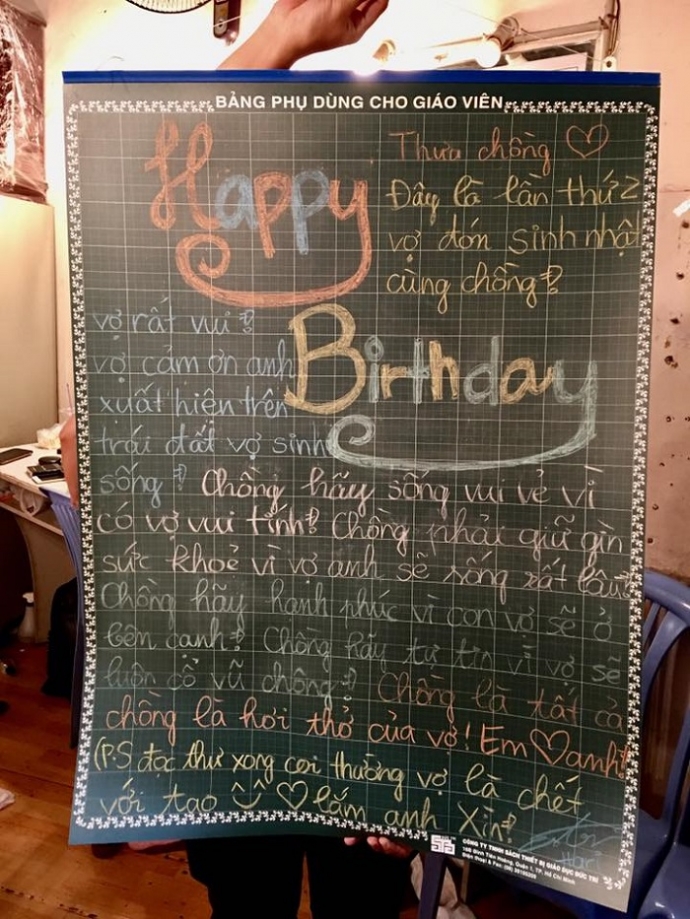 BẢNG PHỤ DÙNG CHO GIÁO VIÊN
Happy
Birthday
Thưa chồng
Đây là lần thứ 2
vợ đón sinh nhật
cùng chồng!
vợ rất vui!
vợ cảm ơn anh
xuất hiện trên
trái đất vợ sinh
sống! Chồng hãy sống vui vẻ vì
có vợ vui tính! Chồng phải giữ gìn
sức khoẻ vì vợ anh sẽ sống rất lâu!
Chồng hãy hạnh phúc vì con vợ sẽ ở
bên cạnh! Chồng hãy tự tin vì vợ sẽ
luôn cổ vũ chồng! Chồng là tất cả
chồng là hơi thở của vợ! Em ♡ anh!
(P.S đọc thư xong coi thường vợ là chết
với tao ♡ lắm anh Xìn!
Hari
CÔNG TY TNHH SÁCH THIẾT BỊ GIÁO DỤC ĐỨC TRÍ